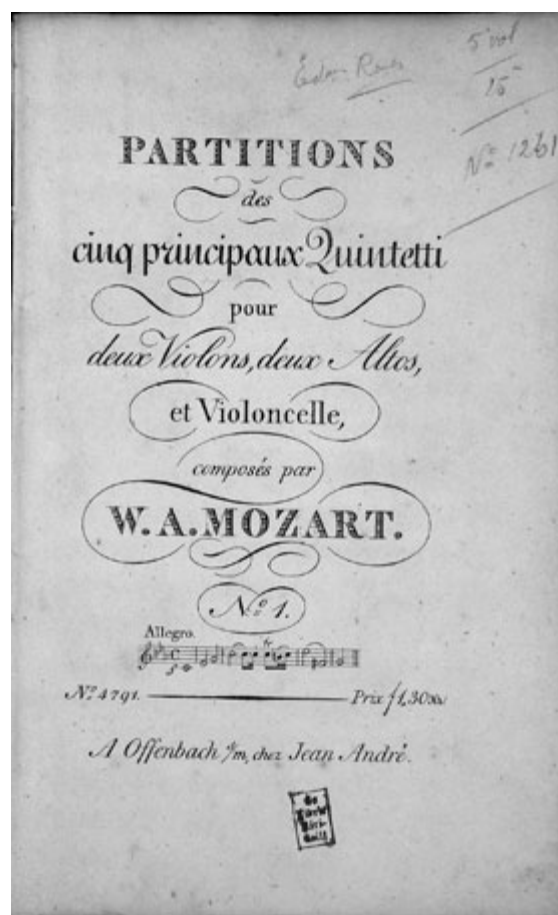 5 vol
15
Nº 1261
PARTITIONS
des
cinq principaux Quintetti
pour
deux Violons, deux Altos,
et Violoncelle,
composés par
W. A. MOZART.
Nº 1.
Allegro.
Nº 4791.
Prix f 1,30 Xr
A Offenbach s/m, chez Jean André.